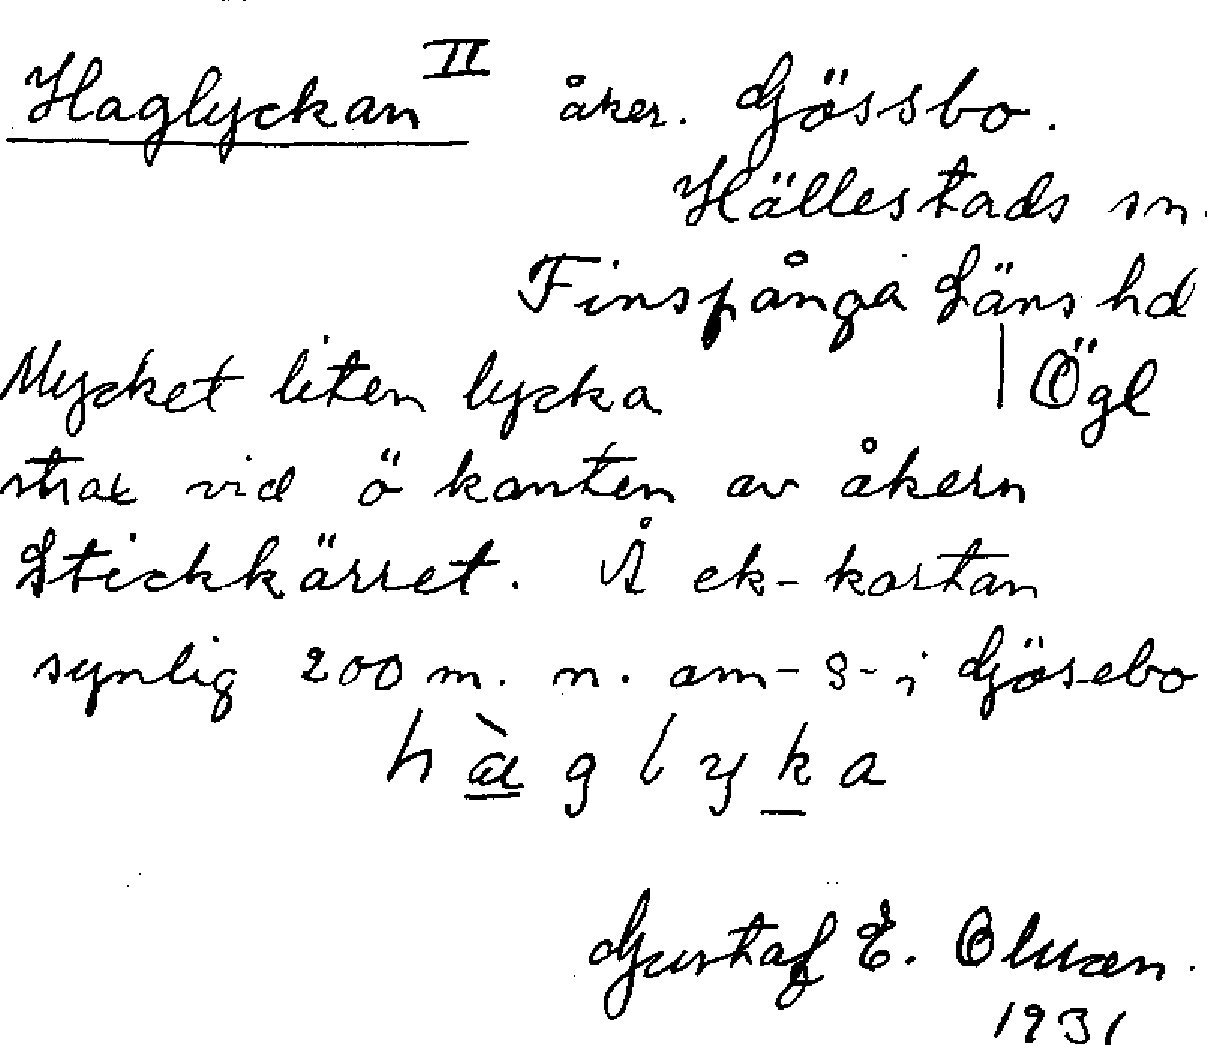 Haglyckan II åker. Gössbo.
Hällestads sn.
Finspånga Läns hd
Mycket liten lycka | Ögl
strax vid ö kanten av åkern
Stickkärret. Å ek-kartan
synlig 200 m. n. om - 8 - i Gösebo
h à g l y k a
Gustaf E.
1931